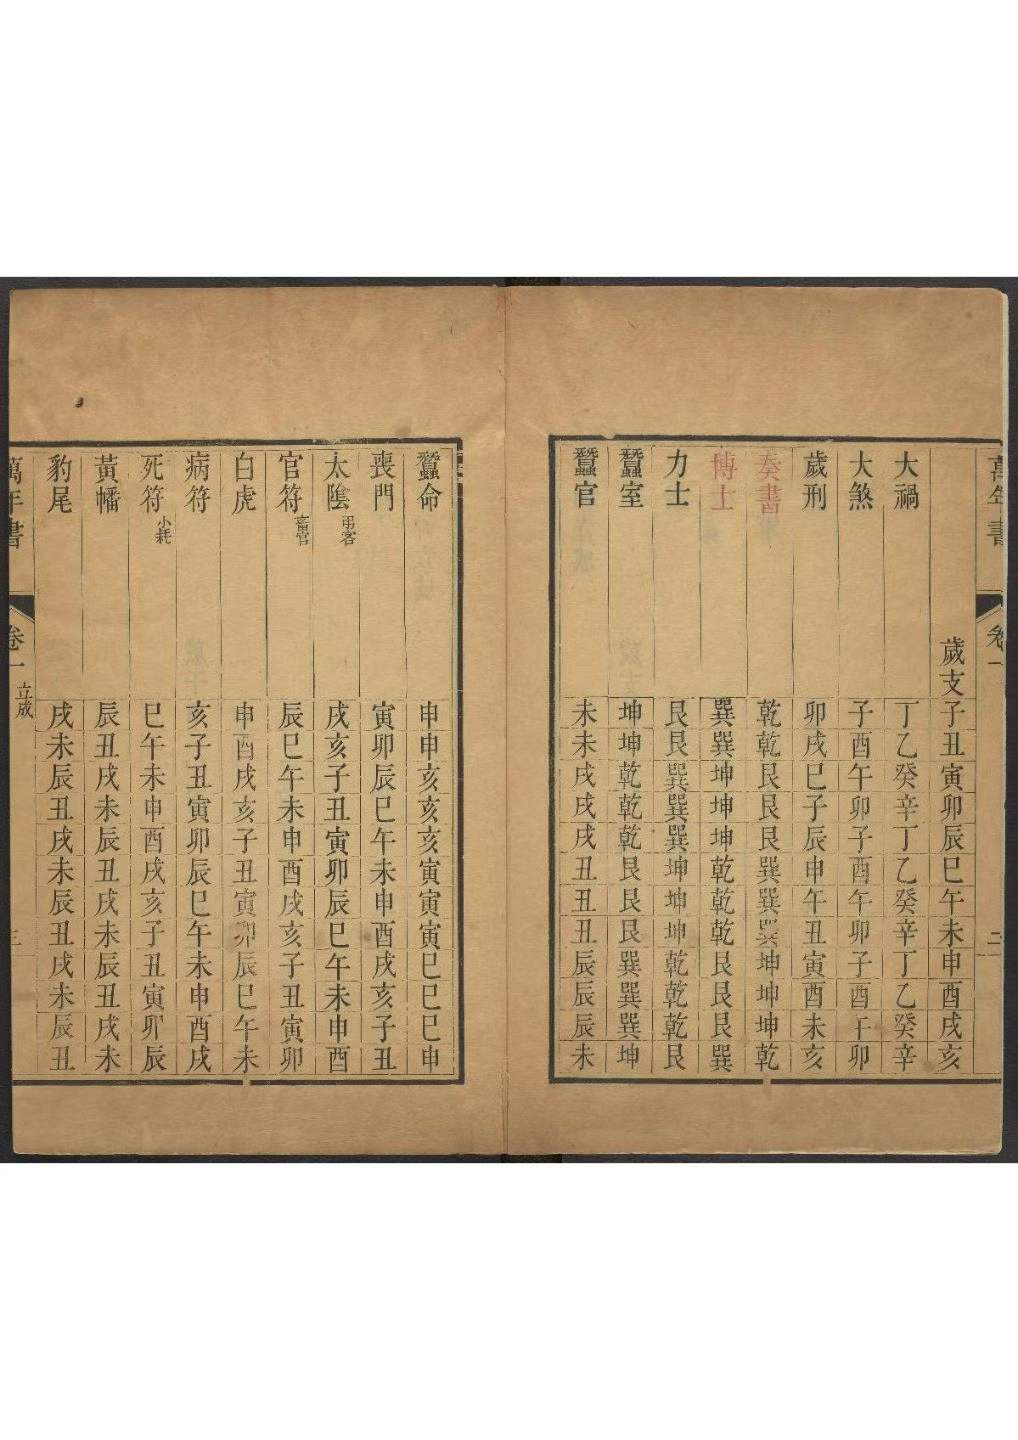 萬年書
卷一
二
歲支子丑寅卯辰巳午未申酉戌亥
大禍丁乙癸辛丁乙癸辛丁乙癸辛
大煞子酉午卯子酉午卯子酉午卯
歲刑卯戌巳子辰申午丑寅酉未亥
奏書乾乾艮艮艮巽巽巽坤坤坤乾
博士巽巽坤坤坤乾乾乾艮艮艮巽
力士艮艮巽巽巽坤坤坤乾乾乾艮
蠶室坤坤乾乾乾艮艮艮巽巽巽坤
蠶官未未戌戌戌丑丑丑辰辰辰未
蠶命申申亥亥亥寅寅寅巳巳巳申
喪門寅卯辰巳午未申酉戌亥子丑
太陰弔客戌亥子丑寅卯辰巳午未申酉
官符畜官辰巳午未申酉戌亥子丑寅卯
白虎申酉戌亥子丑寅卯辰巳午未
病符亥子丑寅卯辰巳午未申酉戌
死符小耗巳午未申酉戌亥子丑寅卯辰
黃幡辰丑戌未辰丑戌未辰丑戌未
豹尾戌未辰丑戌未辰丑戌未辰丑
萬年書
卷一
立成
三